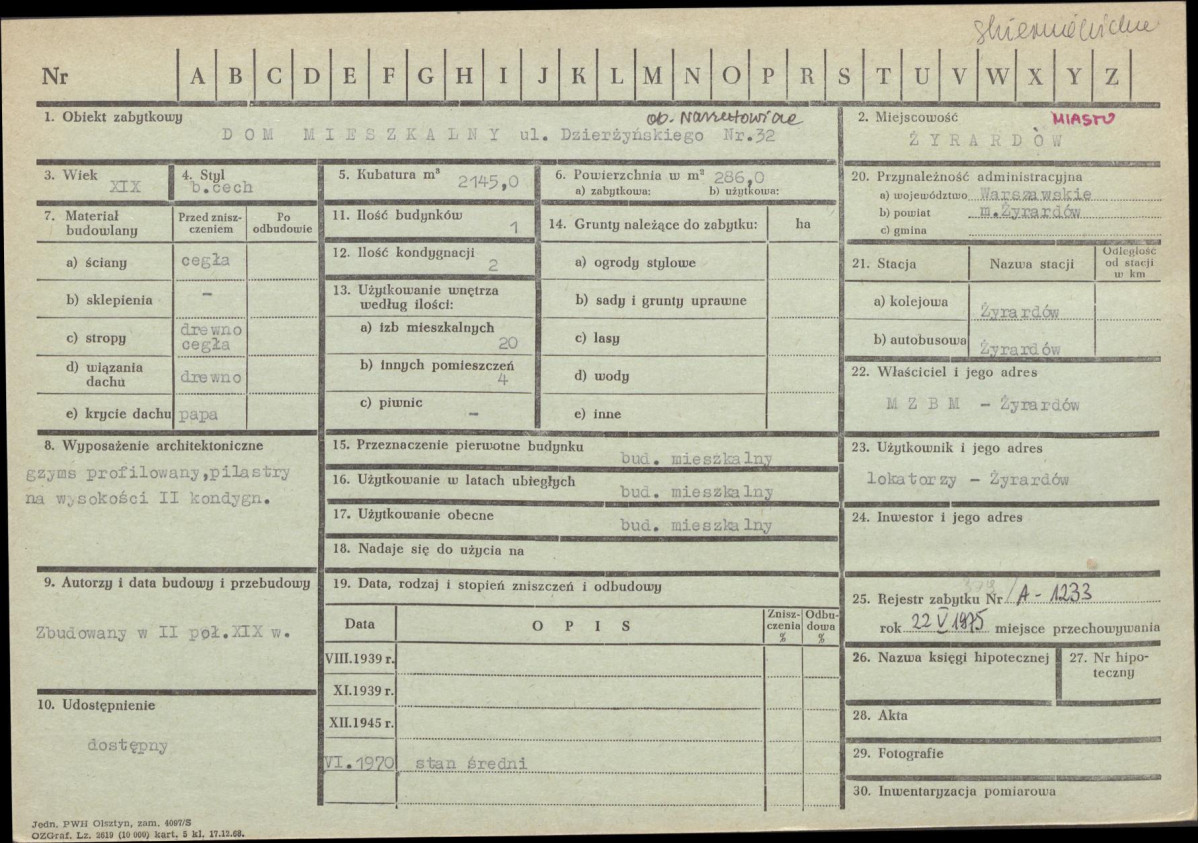 skierniewickie
Nr A B C D E F G H I J K L M N O P R S T U V W X Y Z
1. Obiekt zabytkowy
ob. Narutowicza
DOM MIESZKALNY ul. Dzierżyńskiego Nr.32
2. Miejscowość MIASTO
ŻYRARDÓW
3. Wiek
XIX
4. Styl
b.cech
5. Kubatura m³
2145,0
6. Powierzchnia w m² 286,0
a) zabytkowa: b) użytkowa:
7. Materiał budowlany
Przed zniszczeniem
Po odbudowie
a) ściany cegła
b) sklepienia -
c) stropy drewno
cegła
d) wiązania dachu drewno
e) krycie dachu papa
8. Wyposażenie architektoniczne
gzyms profilowany,pilastry
na wysokości II kondygn.
9. Autorzy i data budowy i przebudowy
Zbudowany w II poł.XIX w.
10. Udostępnienie
dostępny
11. Ilość budynków
1
12. Ilość kondygnacji
2
13. Użytkowanie wnętrza
według ilości:
a) izb mieszkalnych
20
b) innych pomieszczeń
4
c) piwnic
-
14. Grunty należące do zabytku: ha
a) ogrody stylowe
b) sady i grunty uprawne
c) lasy
d) wody
e) inne
15. Przeznaczenie pierwotne budynku
bud. mieszkalny
16. Użytkowanie w latach ubiegłych
bud. mieszkalny
17. Użytkowanie obecne
bud. mieszkalny
18. Nadaje się do użycia na
19. Data, rodzaj i stopień zniszczeń i odbudowy
Data OPIS Zniszczenia % Odbudowa %
VIII.1939 r.
XI.1939 r.
XII.1945 r.
VI.1970 stan średni
20. Przynależność administracyjna
a) województwo Warszawskie
b) powiat m.Żyrardów
c) gmina
21. Stacja Nazwa stacji Odległość od stacji w km
a) kolejowa Żyrardów
b) autobusowa Żyrardów
22. Właściciel i jego adres
M Z B M - Żyrardów
23. Użytkownik i jego adres
lokatorzy - Żyrardów
24. Inwestor i jego adres
25. Rejestr zabytku Nr A-1233
rok 22 V 1975 miejsce przechowywania
26. Nazwa księgi hipotecznej
27. Nr hipoteczny
28. Akta
29. Fotografie
30. Inwentaryzacja pomiarowa
Jedn. PWH Olsztyn, zam. 4097/S
OZGraf. Lz. 2619 (10 000) kart. 5 kl. 17.12.68.